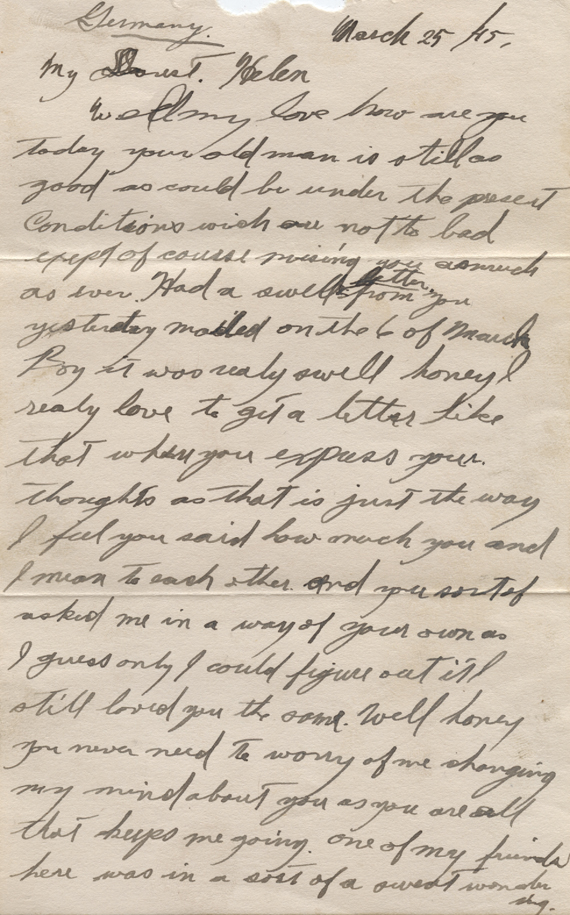 Germany.
March 25/45.
My Dearest. Helen
Well my love how are you
today your old man is still as
good as could be under the present
Conditions wich are not to bad
exept of course missing you as much
as ever. Had a swell letter from you
yesterday mailed on the 6 of March
Boy it was realy swell honey I
realy love to get a letter like
that when you express your
thoughts as that is just the way
I feel you said how much you and
I mean to each other and you sort of
asked me in a way of your own as
I guess only I could figure out if I
still loved you the same. Well honey
you never need to worry of me changing
my mind about you as you are all
that keeps me going. one of my friends
here was in a sort of a sweat wonder
ing.